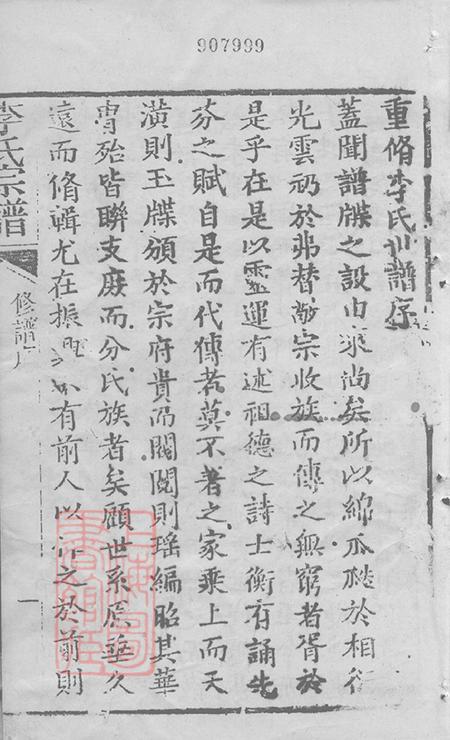 907999
重脩李氏川譜序
蓋聞譜牒之設由來尚矣所以綿瓜瓞於相衍
光雲礽於弗替敬宗收族而傳之無窮者胥於
是乎在是以靈運有述祖德之詩士衡有誦先
芬之賦自是而代傳者莫不著之家乘上而天
潢則玉牒頒於宗府貴而閥閱則瑤編昭其華
胄殆皆聯支庶而分氏族者矣顧世系愿華久
遠而脩輯尤在振有前人以作之於前則
李氏宗譜
修譜序
一